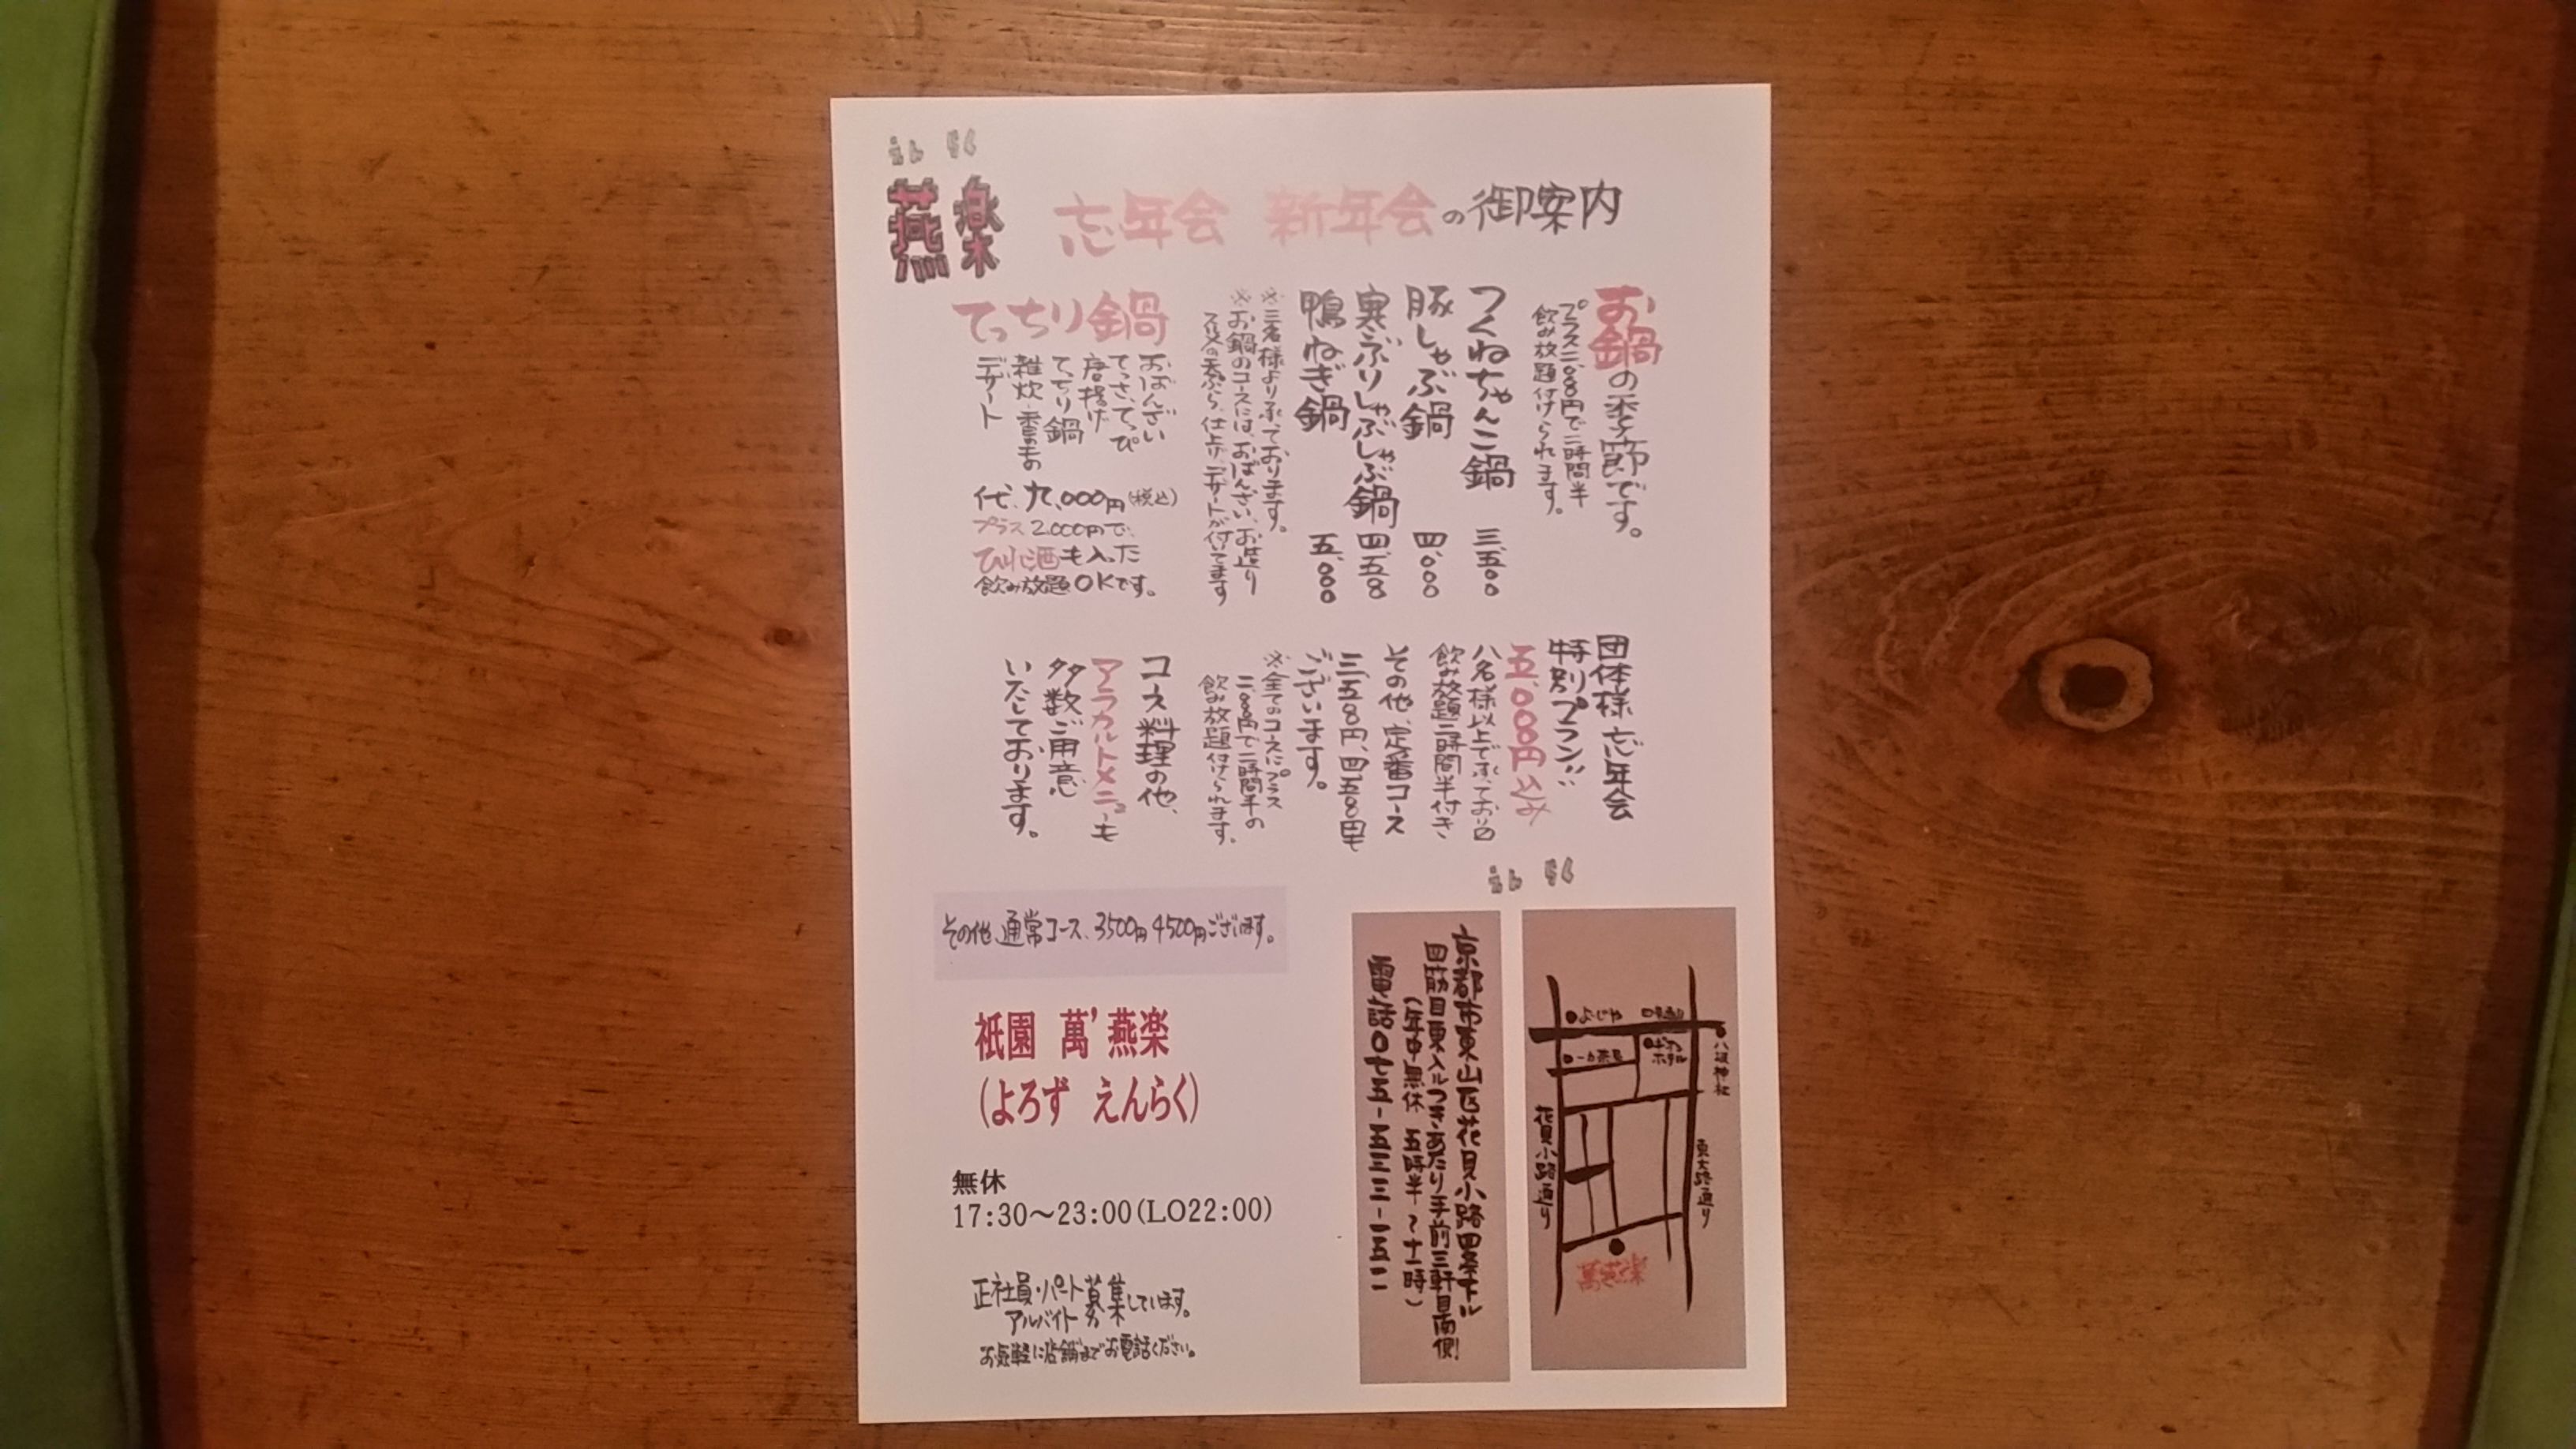 えん らく
燕楽
忘年会 新年会の御案内
お鍋の季節です。
プラス二、〇〇〇円で二時間半
飲み放題付けられます。
つくねちゃんこ鍋 三、五〇〇
豚しゃぶ鍋 四、〇〇〇
寒ぶりしゃぶしゃぶ鍋 四、五〇〇
鴨ねぎ鍋 五、〇〇〇
※三名様より承っております。
※お鍋のコースには、おばんざい、お造り
天ぷら、仕上げ、デザートが付いてます
てっちり鍋
おばんざい
てっさ、てっぴ
唐揚げ
てっちり鍋
雑炊・香の物
デザート
代、九、000円(税込)
プラス2,000円で、
ひれ酒も入った
飲み放題OKです。
団体様忘年会
特別プラン!!
五、〇〇〇円込み
八名様以上で承っており
飲み放題二時間半付き
その他、定番コース
三、五〇〇円、四、五〇〇円も
ございます。
※全てのコースにプラス
二、〇〇〇円で二時間半の
飲み放題付けられます。
コース料理の他、
アラカルトメニューも
多数ご用意
いたしております。
えん らく
その他、通常コース、3500円4500円ございます。
祇園 萬'燕楽
(よろず えんらく)
無休
17:30～23:00(LO22:00)
正社員・パート
アルバイト 募集しています。
お気軽に店舗までお電話ください。
京都市東山区花見小路四条下ル
四筋目東入ルつきあたり手前三軒目南側
(年中無休 五時半～十一時)
電話〇七五-五三三-一五一一
よーじや
一力茶屋
ぎおんホテル
八坂神社
花見小路通り
東大路通り
萬燕楽